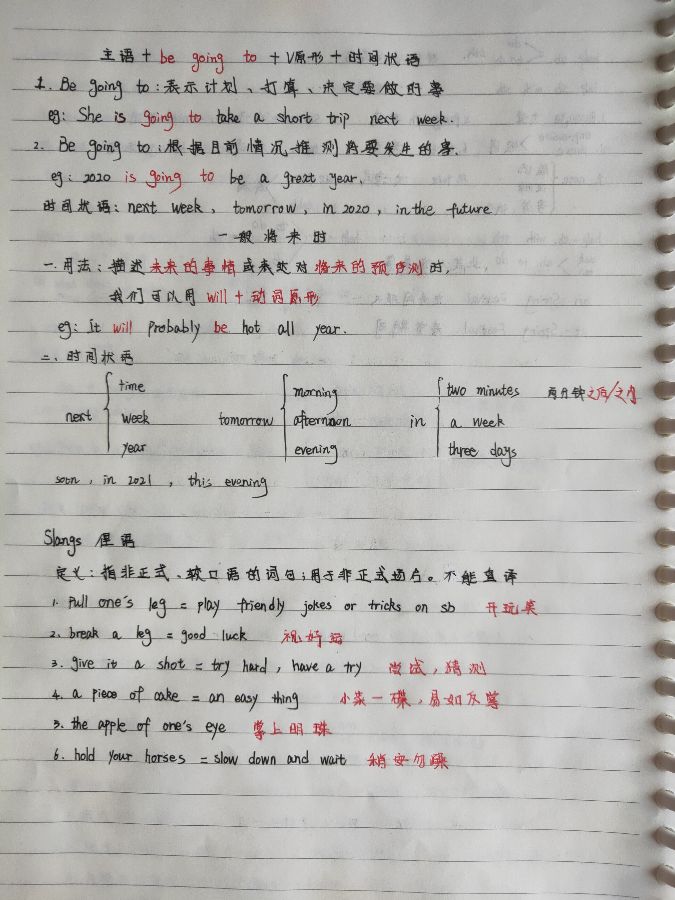 主语 + be going to + V原形 + 时间状语
1. Be going to : 表示计划、打算、决定要做的事
eg: She is going to take a short trip next week.
2. Be going to : 根据目前情况推测将要发生的事.
eg: 2020 is going to be a great year.
时间状语: next week, tomorrow, in 2020, in the future
一般将来时
一. 用法: 描述未来的事情或来处对将来的预测时,
我们可以用 will + 动词原形
eg: It will probably be hot all year.
二、时间状语
next { time tomorrow { morning in { two minutes 两分钟之后/之内
week afternoon a week
year evening three days
soon, in 2021, this evening
Slangs 俚语
定义: 指非正式、较口语的词句;用于非正式场合。不能直译
1. Pull one's leg = play friendly jokes or tricks on sb 开玩笑
2. break a leg = good luck 祝好运
3. give it a shot = try hard, have a try 尝试,猜测
4. a piece of cake = an easy thing 小菜一碟,易如反掌
5. the apple of one's eye 掌上明珠
6. hold your horses = slow down and wait 稍安勿躁